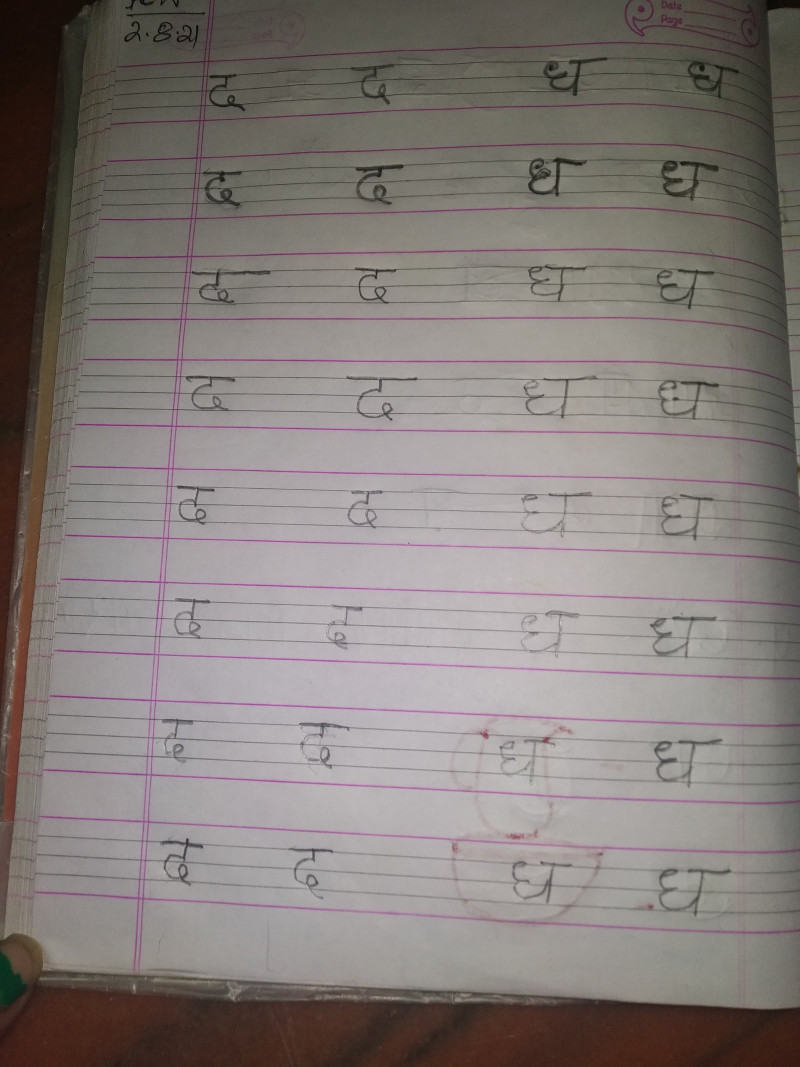 2.8.21
Date
Page
द द ध ध
द द ध ध
द द ध ध
द द ध ध
द द ध ध
द द ध ध
द द ध ध
द द ध ध